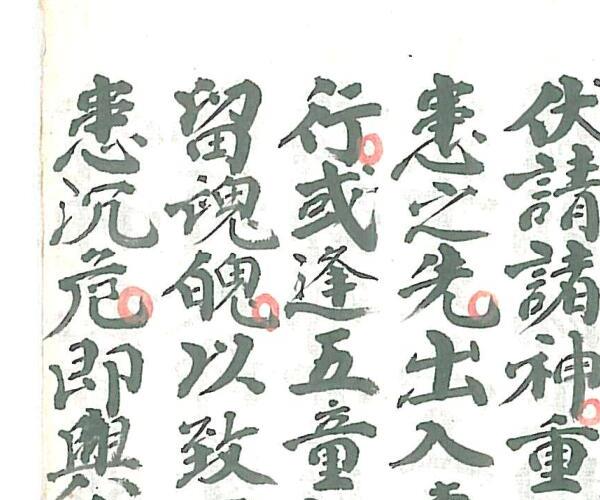 伏請諸神重
患之先出入
行或逢五童
留魂魄以致
患沉危即興